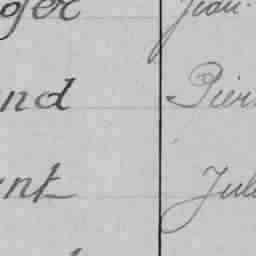 ger Jean-
nd Pierr
nt Jul